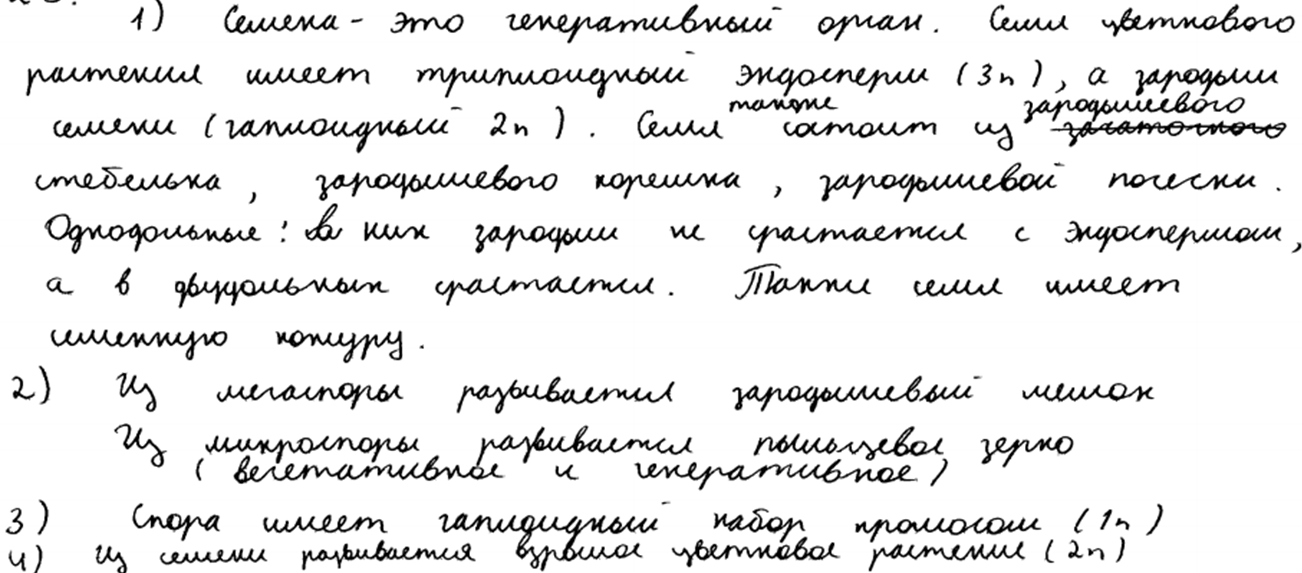 1) Семена - это генеративный орган. Семя цветкового
растения имеет триплоидный эндосперм (3n), а зародыш
семени (гаплоидный 2n). Семя также состоит из зародышевого
стебелька, зародышевого корешка, зародышевой почески.
Однодольные: в них зародыш не срастается с эндоспермом,
а в двудольных срастается. Также семя имеет
семенную кожуру.
2) Из мегаспоры развивается зародышевый мешок
Из микроспоры развивается пыльцевое зерно
(вегетативное и генеративное)
3) Спора имеет гаплоидный набор хромосом (1n)
4) Из семени развивается взрослое цветковое растение (2n)